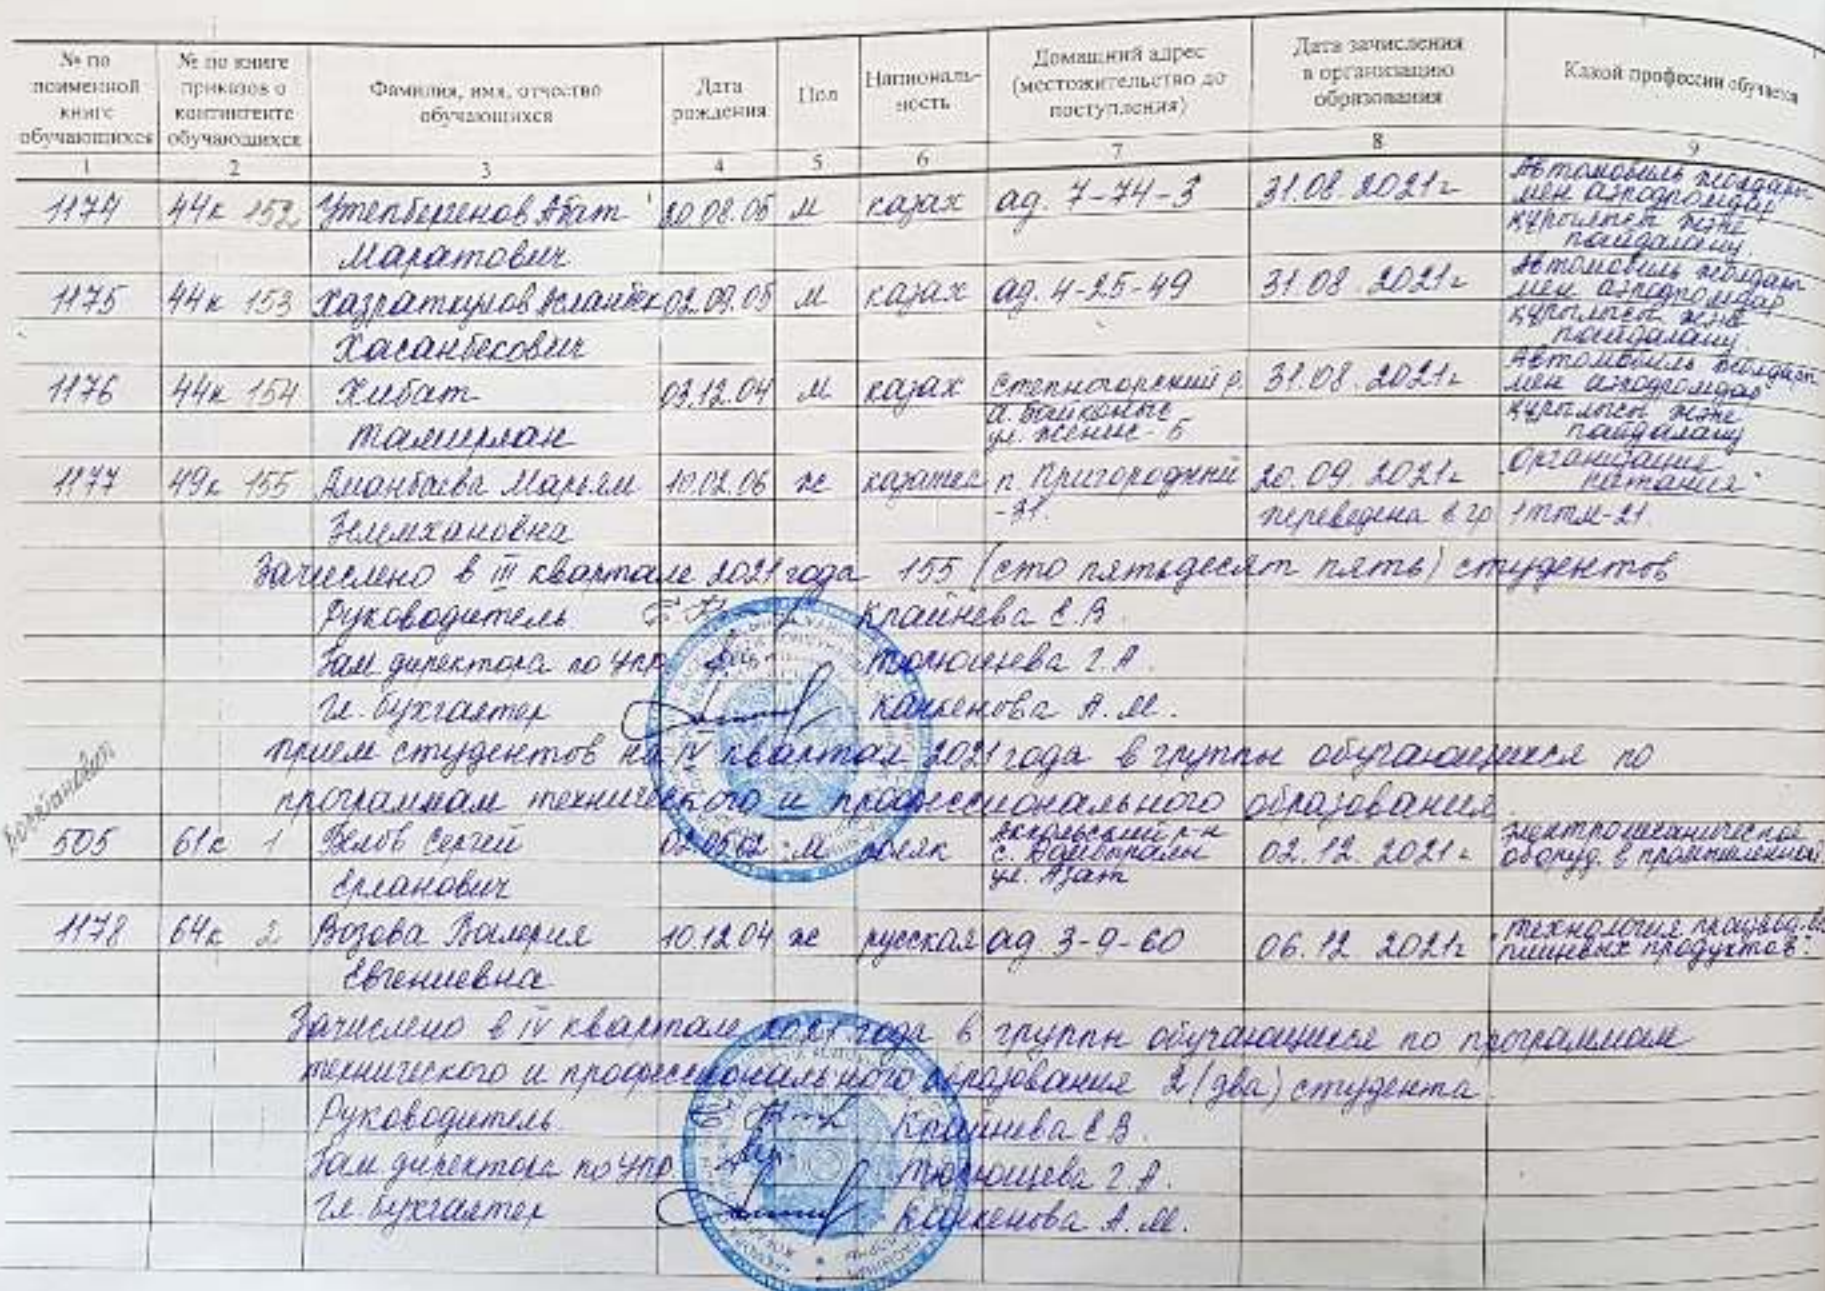 № по поименной книге обучающихся
№ по книге приказов о контингенте обучающихся
Фамилия, имя, отчество обучающихся
Дата рождения
Пол
Националь-ность
Домашний адрес (местожительство до поступления)
Дата зачисления в организацию образования
Какой профессии обучается
1 2 3 4 5 6 7 8 9
1174 44к 152 Утепбергенов Абат 20.08.05 м казах ад. 7-74-3 31.08.2021г Автомобиль жолдары
Маратович мен аэродромдар құрылысы және пайдалану
1175 44к 153 Хазраткулов Асланбек 02.09.05 м казах ад. 4-25-49 31.08.2021г Автомобиль жолдары
Хасанбекович мен аэродромдар құрылысы және пайдалану
1176 44к 154 Хибат 03.12.04 м казах Степногорский р. 31.08.2021г Автомобиль жолдары
Тамирлан ул. Женис-5 мен аэродромдар құрылысы және пайдалану
1177 49к 155 Аманбаева Марьям 10.02.06 ж казашка п. Пригородний 20.09.2021г Организация питания
-31. переведена в гр 1ттм-21.
Зачислено в III квартале 2021 года 155 (сто пятьдесят пять) студентов
Руководитель Крайнева Е.В.
Зам директора по УПР Г.А.
Гл. бухгалтер Канкенова А.М.
прием студентов на IV квартал 2021 года в группы обучающихся по
программам технического и профессионального образования
505 61к 1 Белов Сергей м поляк Аккольский р-н 02.12.2021г электромеханическое
Ерланович ул. Азат оборуд. в промышленной
1178 64к 2 Возова Валерия 10.12.04 ж русская ад. 3-9-60 06.12 2021г технология
Евгениевна пищевых продуктов.
Зачислено в IV квартале 2021 года в группы обучающиеся по программам
технического и профессионального образования 2 (два) студента.
Руководитель Крайнева Е.В.
Зам директора по УПР Г.А.
Гл. бухгалтер Канкенова А.М.